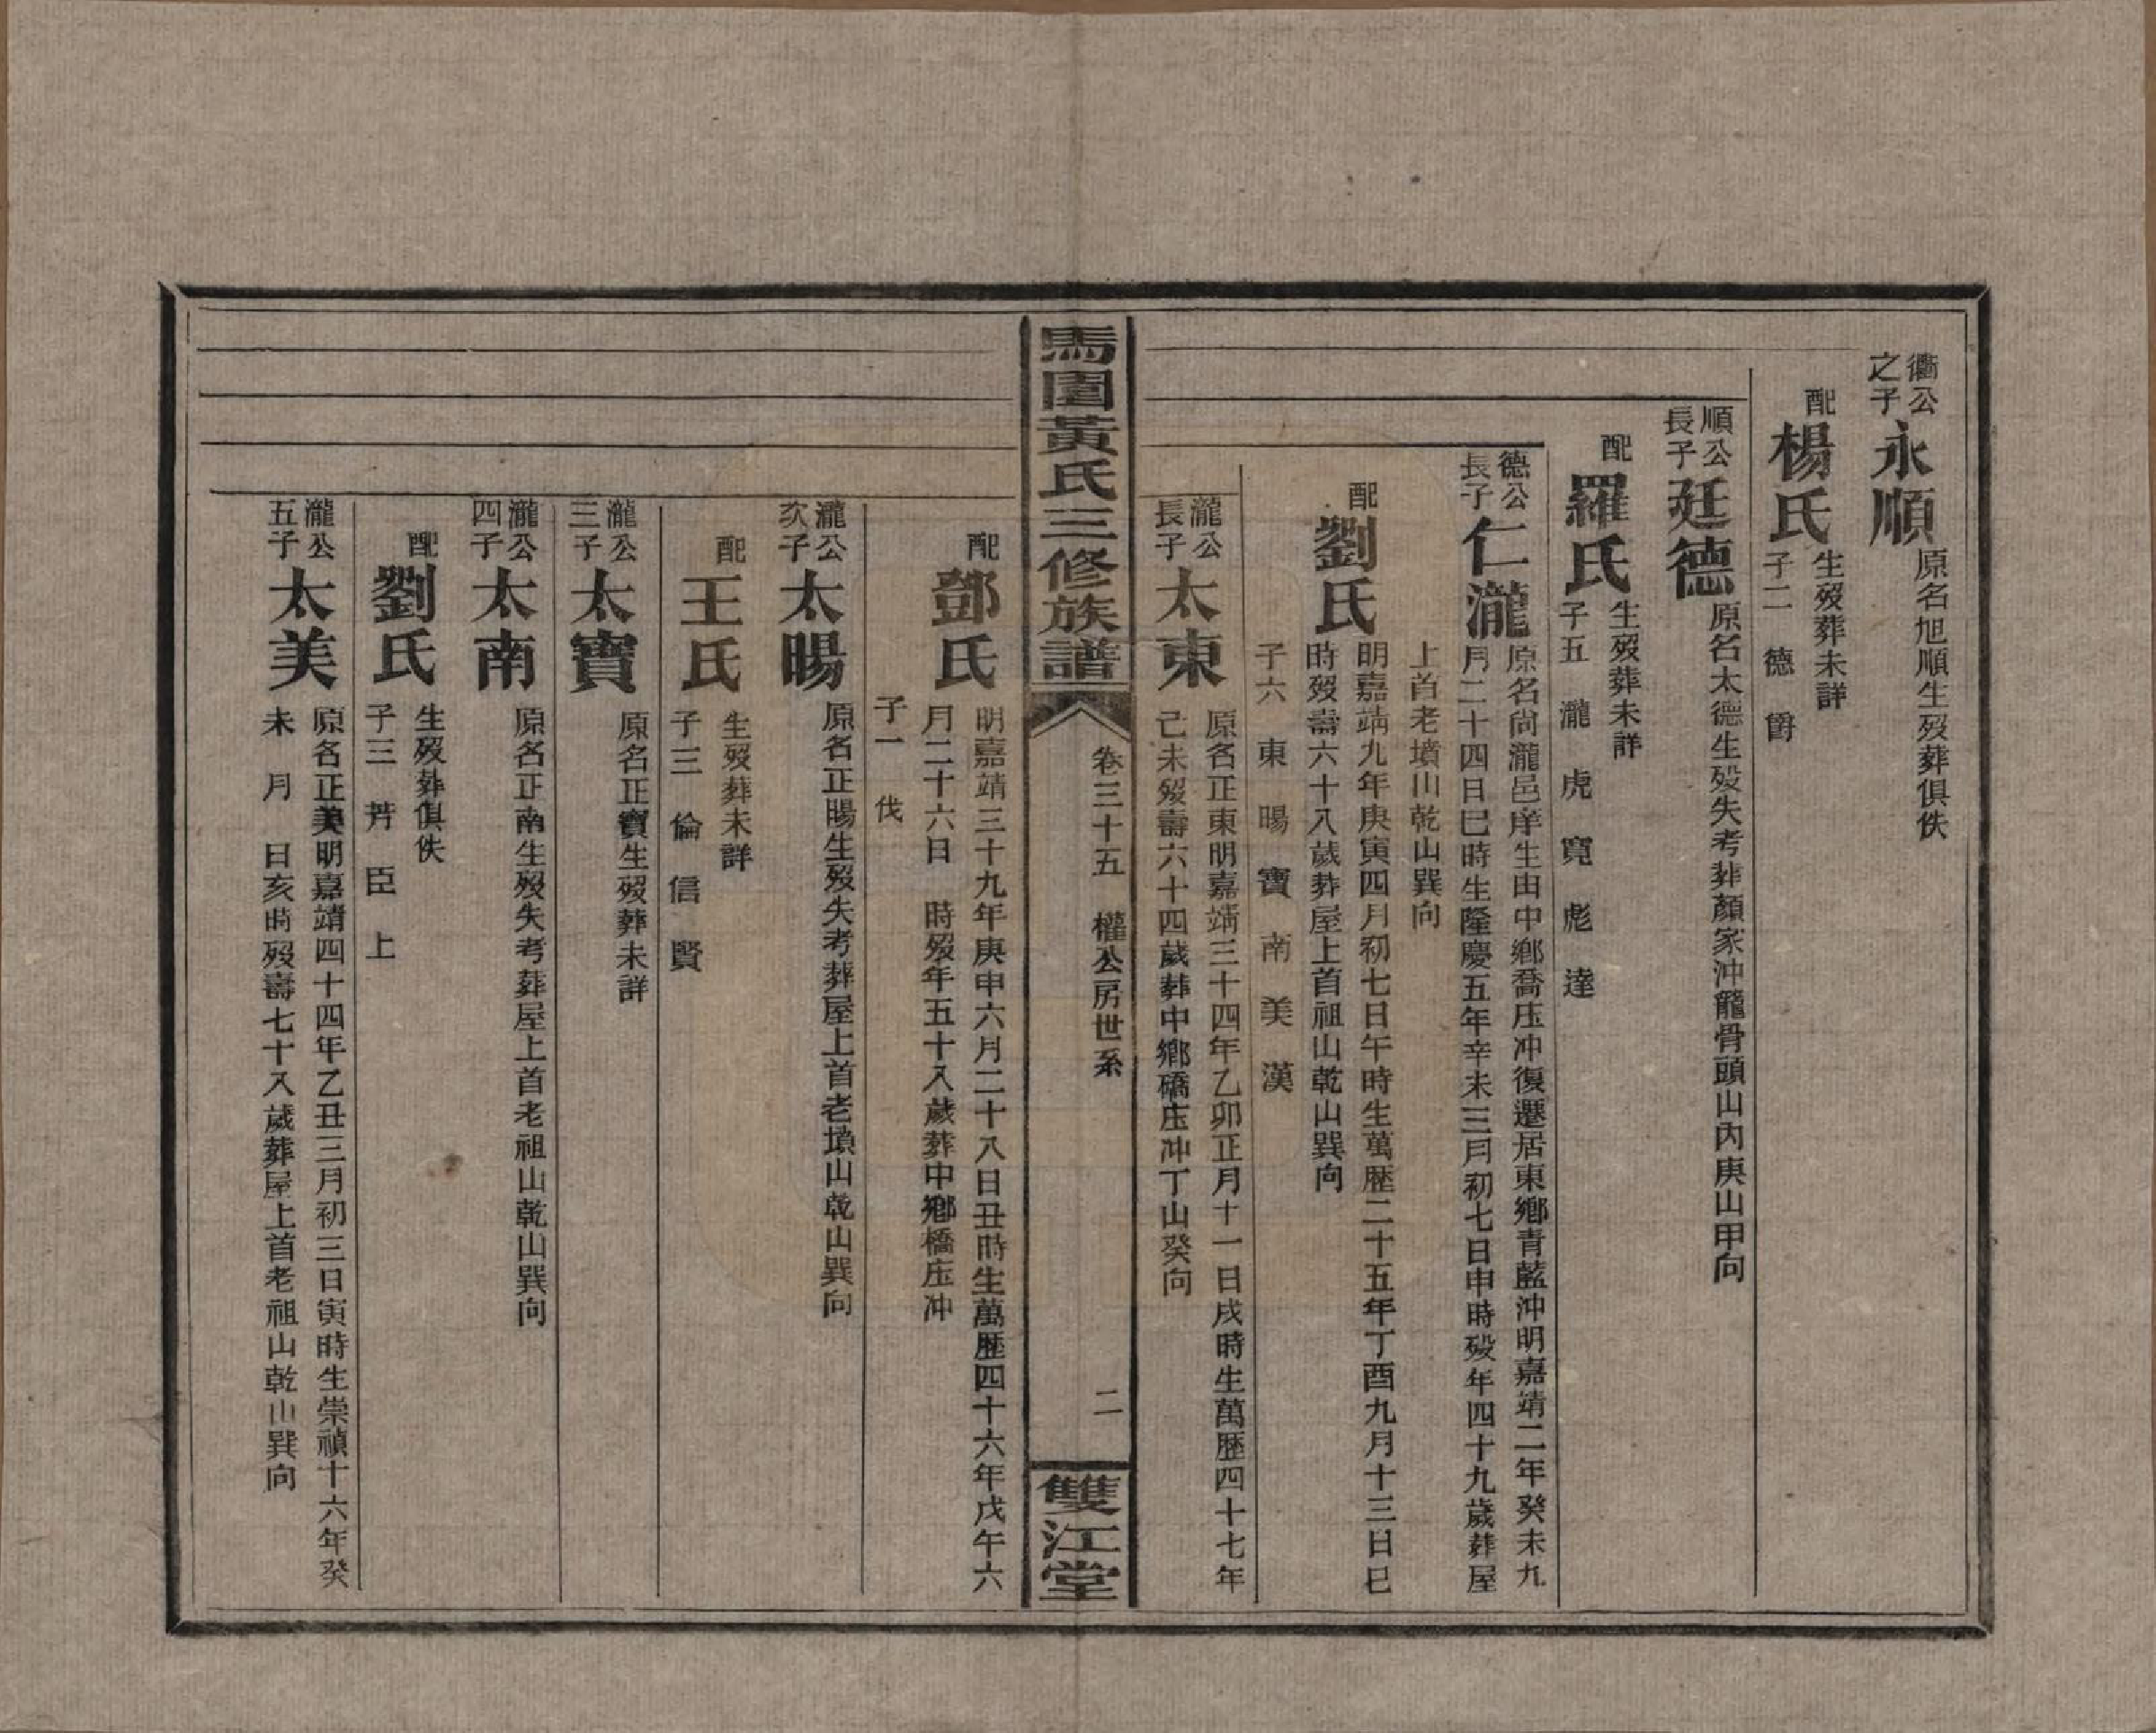 衢公
之子
永順
原名旭順生歿葬俱佚
配
楊氏
生歿葬未詳
子二 德 爵
順公
長子
廷德
原名太德生歿失考葬顏家沖龍骨頭山內庚山甲向
配
羅氏
生歿葬未詳
子五 瀧 虎 寬 彪 達
德公
長子
仁瀧
原名尚瀧邑庠生由中鄉喬庄冲復遷居東鄉青藍沖明嘉靖二年癸未九
月二十四日巳時生隆慶五年辛未三月初七日申時歿年四十九歲葬屋
上首老墳山乾山巽向
配
劉氏
明嘉靖九年庚寅四月初七日午時生萬歷二十五年丁酉九月十三日巳
時歿壽六十八歲葬屋上首祖山乾山巽向
子六 東 暘 寶 南 美 漢
瀧公
長子
太東
原名正東明嘉靖三十四年乙卯正月十一日戌時生萬歷四十七年
己未歿壽六十四歲葬中鄉礄庄冲丁山癸向
馬園黃氏三修族譜
卷三十五 權公房世系
二
雙江堂
配
鄧氏
明嘉靖三十九年庚申六月二十八日丑時生萬歷四十六年戊午六
月二十六日 時歿年五十八歲葬中鄉橋庄冲
子一 伐
瀧公
次子
太暘
原名正暘生歿失考葬屋上首老墳山乾山巽向
配
王氏
生歿葬未詳
子三 倫 信 賢
瀧公
三子
太寶
原名正寶生歿葬未詳
瀧公
四子
太南
原名正南生歿失考葬屋上首老祖山乾山巽向
配
劉氏
生歿葬俱佚
子三 芳 臣 上
瀧公
五子
太美
原名正美明嘉靖四十四年乙丑三月初三日寅時生崇禎十六年癸
未 月 日亥時歿壽七十八歲葬屋上首老祖山乾山巽向